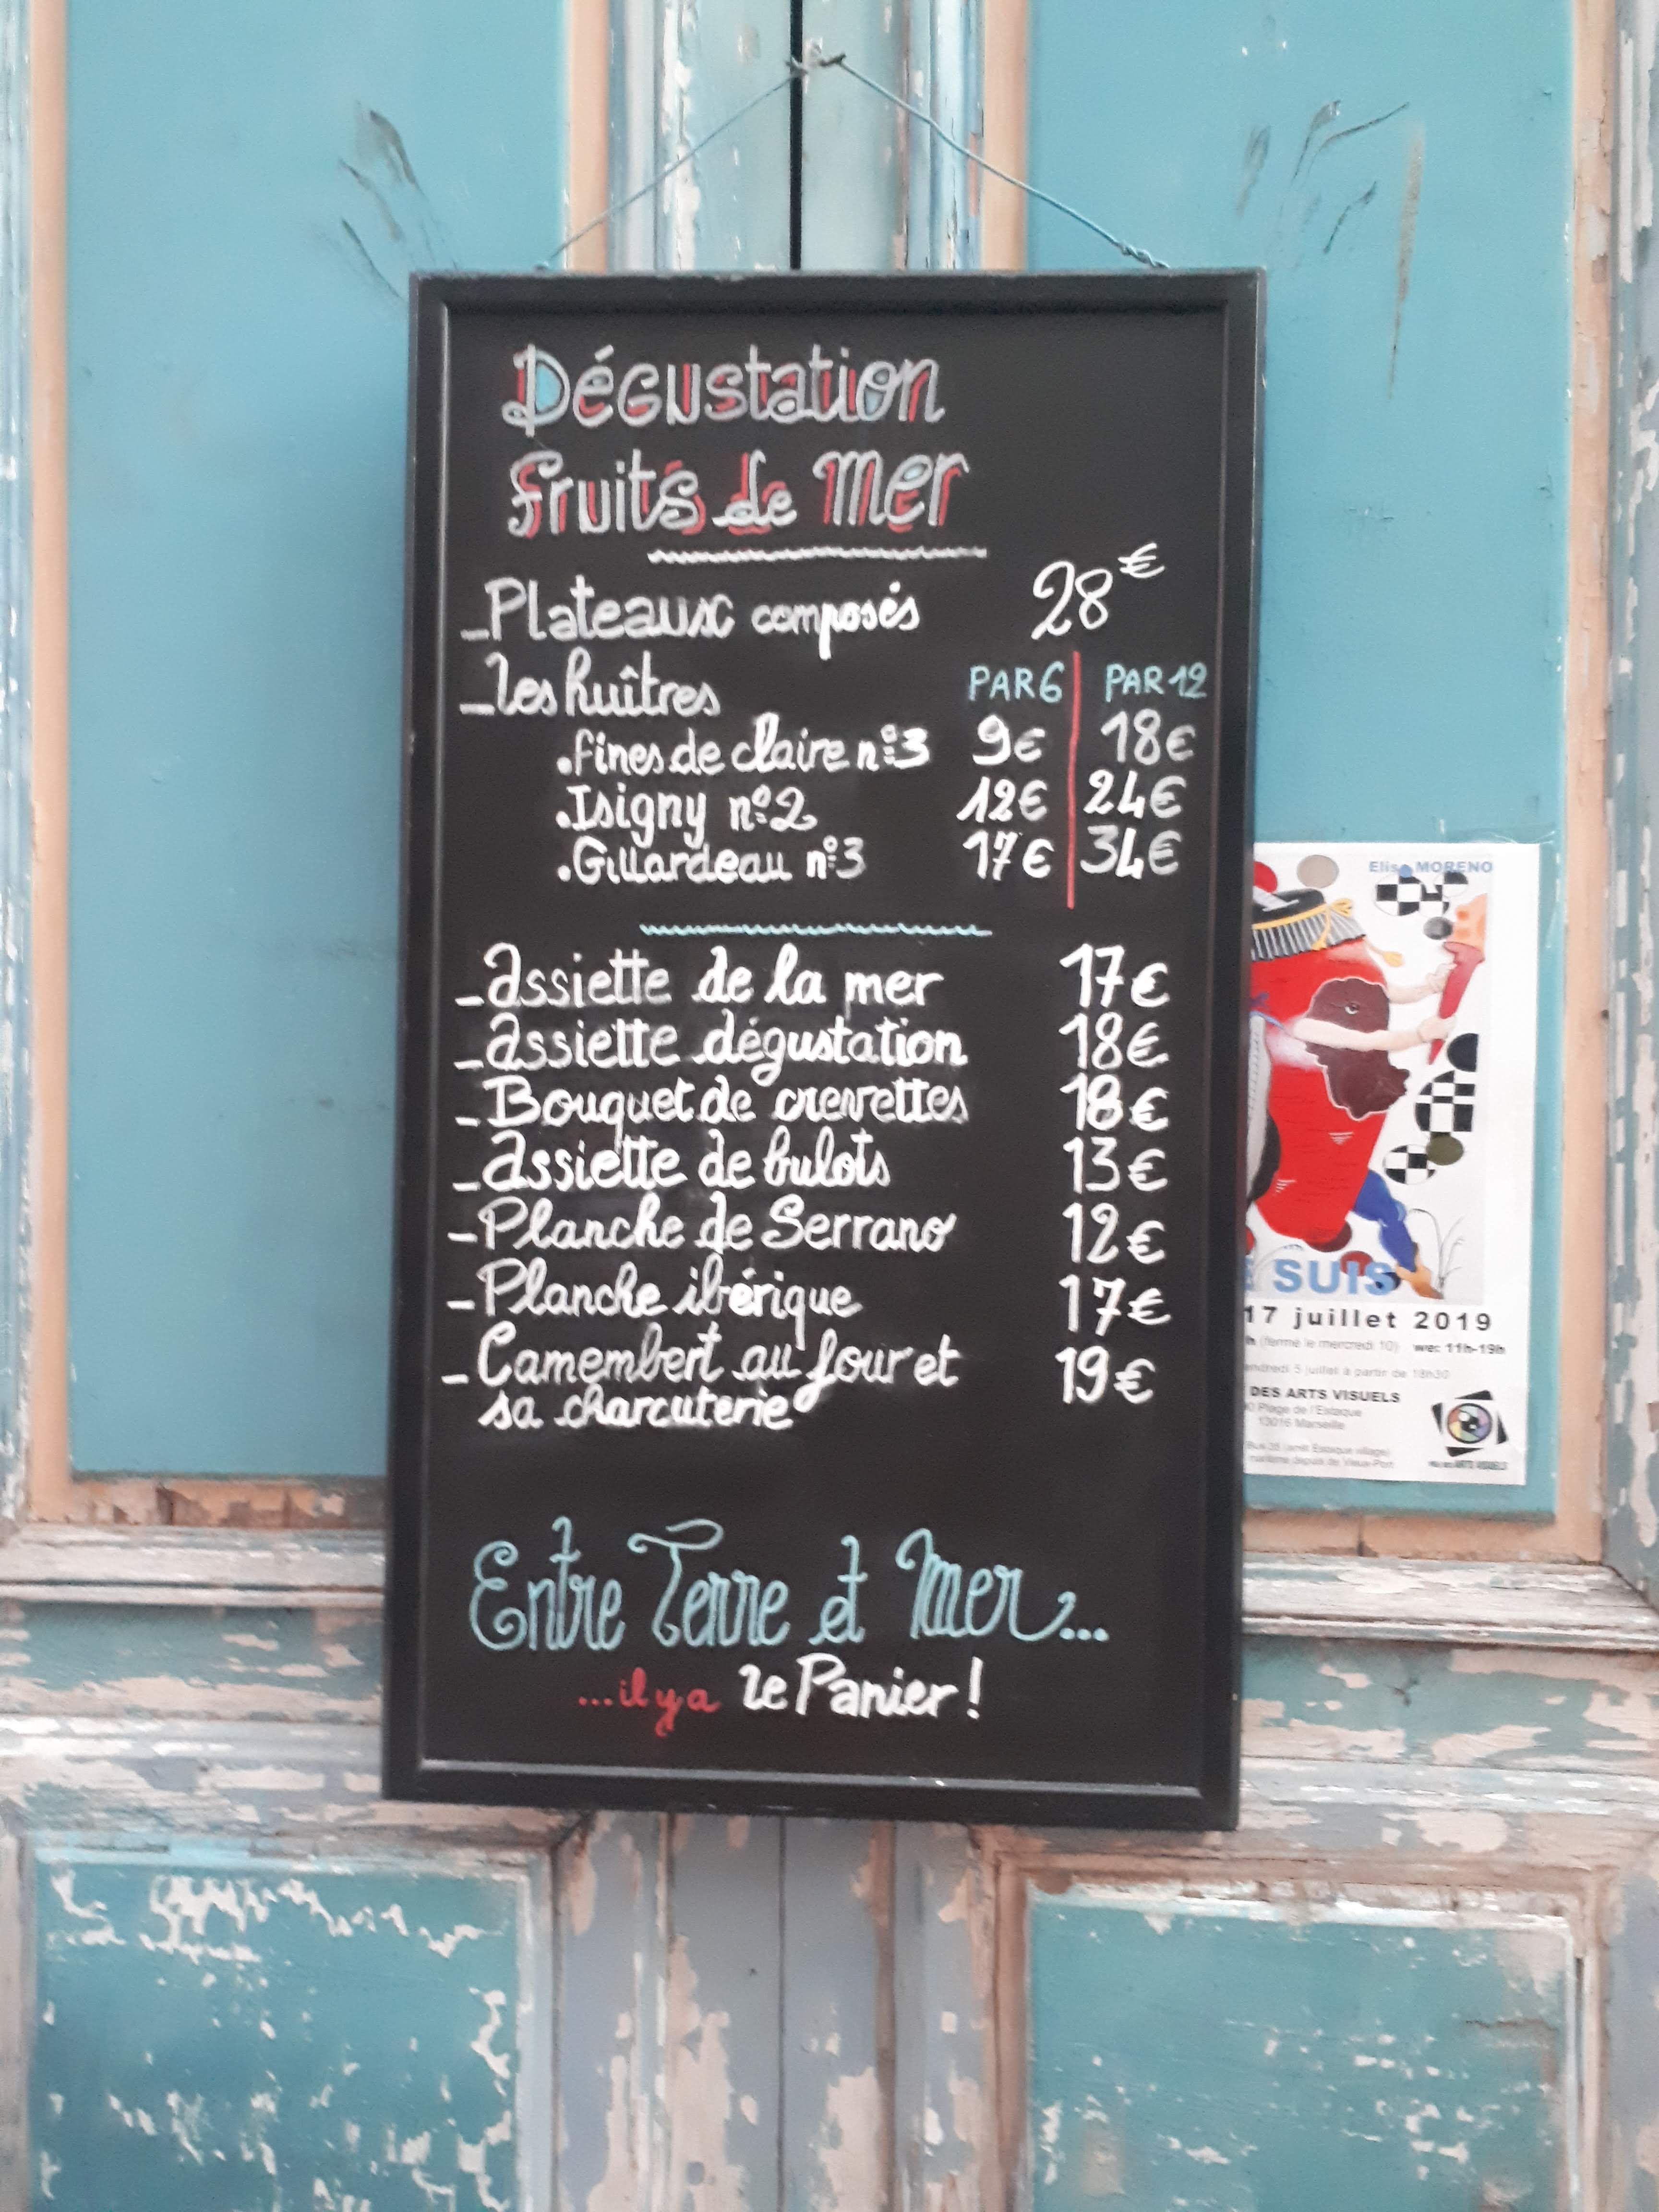 Dégustation
fruits de mer
_Plateaux composés 28€
_les huîtres PAR 6 PAR 12
.fines de claire n°3 9€ 18€
.Isigny n°2 12€ 24€
.Gillardeau n°3 17€ 34€
_assiette de la mer 17€
_assiette dégustation 18€
_Bouquet de crevettes 18€
_assiette de bulots 13€
_Planche de Serrano 12€
_Planche ibérique 17€
_Camembert au four et 19€
sa charcuterie
Entre Terre et Mer...
...il y a le Panier !
Elisa MORENO
SUIS
17 juillet 2019
(fermé le mercredi 10) we: 11h-19h
5 juillet à partir de 18h30
DES ARTS VISUELS
Plage de l'Estaque
13016 Marseille
Bus 35 (arrêt Estaque village)
maritime depuis de Vieux-Port
ARTS VISUELS